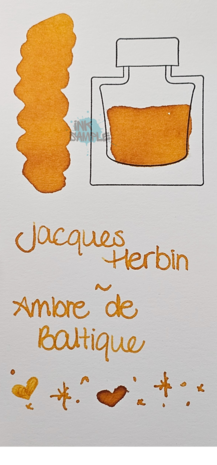 INK
SAMPLE
Jacques
Herbin
~
Ambre de
Baltique